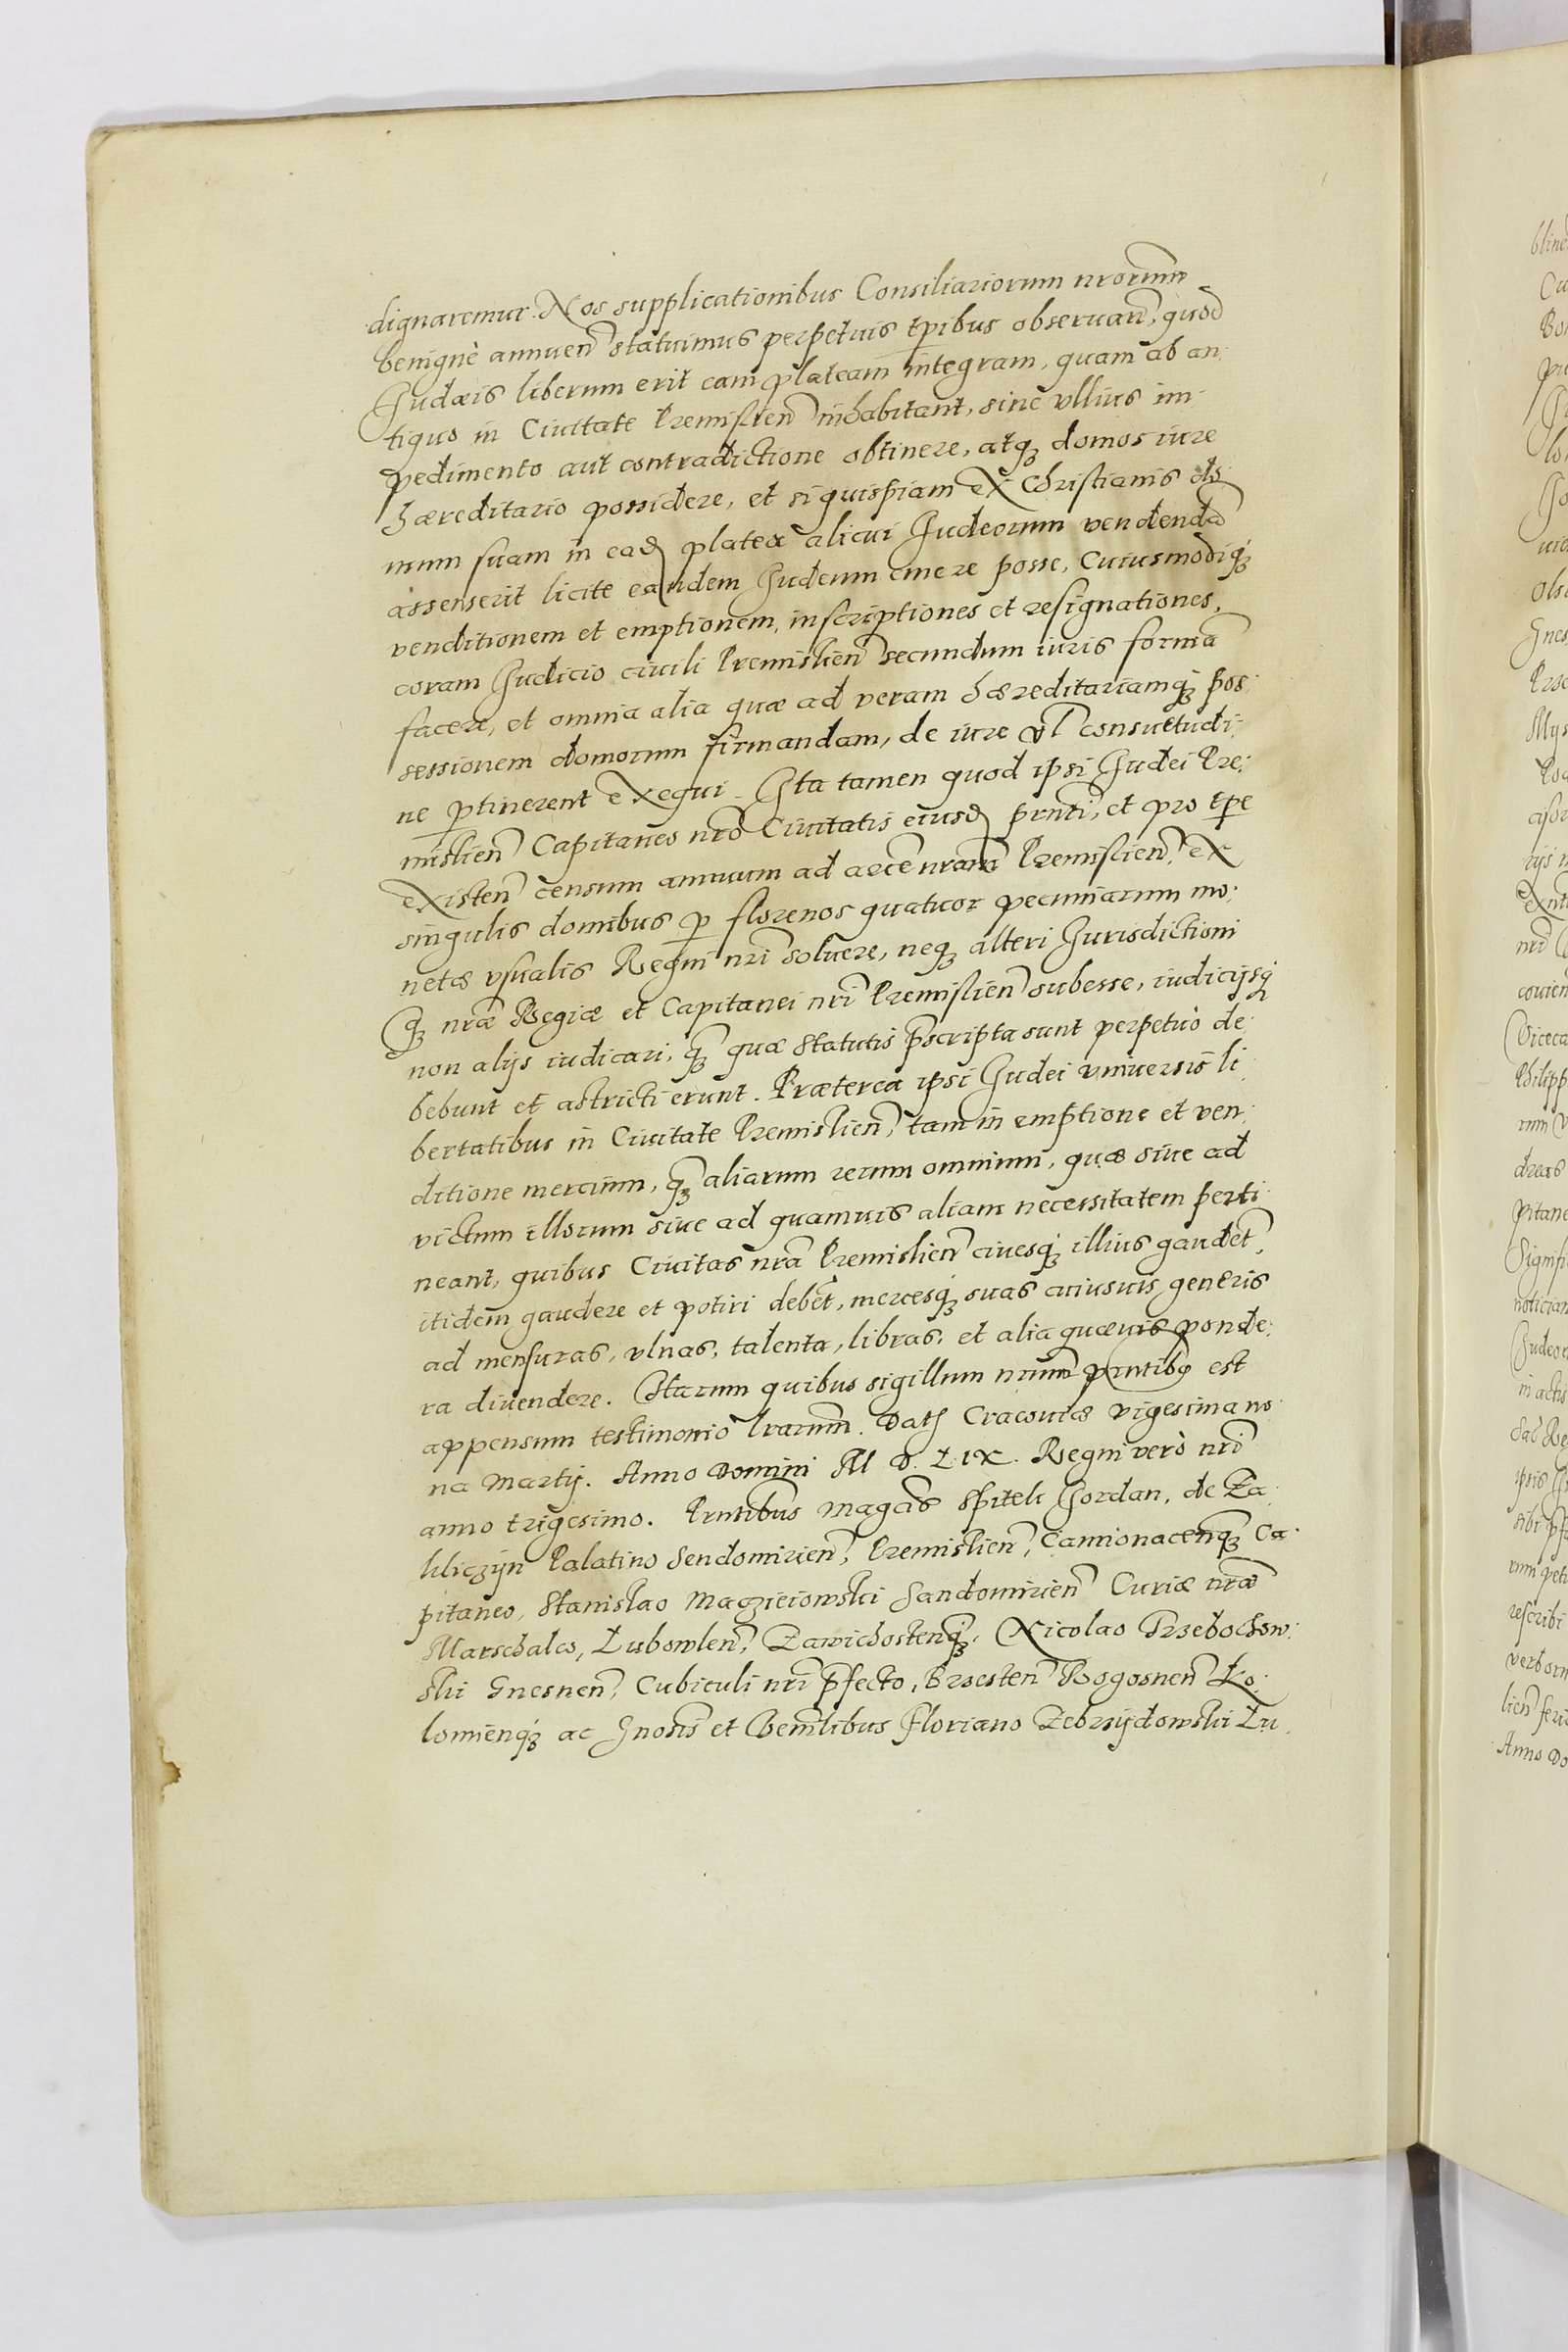 dignaremur. Nos supplicationibus Consiliariorum nrorum
benignè annuen̄ statuimus perpetuis tp̄ibus obseruan̄, quod
Judæis liberum erit eam plateam integram, quam ab an:
tiquo in Ciuitate Premislien̄ inhabitant, sine vllius im:
pedimento aut contradictione obtinere, atq3 domos iure
hæreditario possidere, et si quispiam ex Christianis do:
mum suam in ead platea alicui Judeorum vendenda
assenserit licite eandem Judeum emere posse, Cuiusmodiq3
venditionem et emptionem, inscriptiones et resignationes,
coram Judicio ciuili Premislien̄ secundum iuris formā
facere, et omnia alia quæ ad veram hæreditariamq3 pos:
sessionem domorum firmandam, de iure vl consuetudi:
ne ptinerent exequi. Ita tamen quod ipsi Judei Pre:
mislien̄ Capitaneo nrō Ciuitatis eiusd prnti, et pro tpe
existen̄ censum annuum ad arcē nram Premislien̄, ex
singulis domibus p florenos quatuor pecuniarum mo:
netæ vsualis Regni nri soluere, neq3 alteri Jurisdictioni
q3 nræ Regiæ et Capitanei nri Premislien̄ subesse, iudicijsq3
non alijs iudicari, q3 quæ statutis p̄scripta sunt perpetuò de:
bebunt et astricti erunt. Præterea ipsi Judei vniuersis li:
bertatibus in Ciuitate Premislien̄, tam in emptione et ven:
ditione mercium, q3 aliarum rerum omnium, quæ siue ad
victum illorum siue ad quamuis aliam necessitatem perti:
neant, quibus Ciuitas nra Premislien̄ ciuesq3 illius gaudet,
itidem gaudere et potiri debet, mercesq3 suas cuiusuis generis
ad mensuras, vlnas, talenta, libras, et alia quæuis ponde:
ra diuendere. Harum quibus sigillum nrum prntibq est
appensum testimonio lrarum. Dat Cracouiæ vigesima no:
na Martij. Anno Domini M D. LIX. Regni verò nri
anno trigesimo. Prntibus magcis Spitek Jordan, de Za:
kliczyn Palatino Sendomirien̄, Premislien̄, Camionacenq3 Ca:
pitaneo, Stanislao Maczieiowski Sandomirien̄ Curiæ nræ
Marschalco, Lubowlen̄, Zawichostenq3, Nicolao Trzebochow:
ski Gnesnen̄, Cubiculi nri p̄fecto, Brzesten̄ Rogosnen̄ Ko:
lomienq3 ac Gnosis et Venlibus Floriano Zebrzydowski Lu: